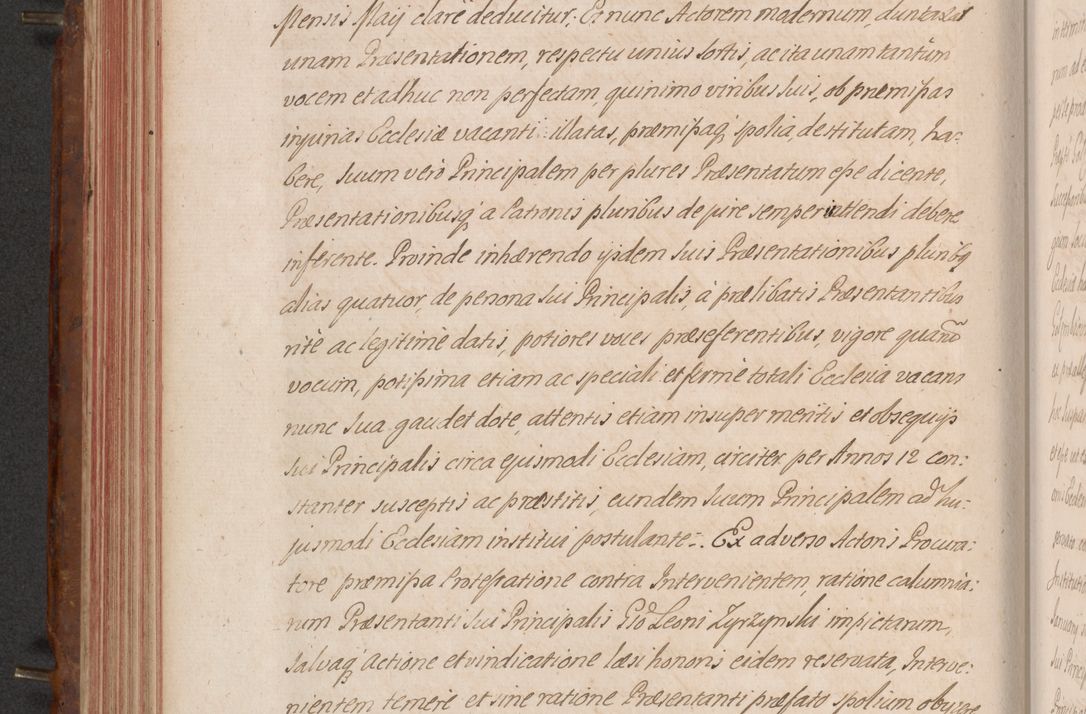 Mensis Maij clare deducitur. Et nunc Actorem modernum, duntaxat
unam Præsentationem, respectu unius sortis, ac ita unam tantum
vocem et adhuc non perfectam, quinimo viribus suis, ob præmissas
injurias Ecclesiæ vacanti illatas, præmissaq, spolia, destitutam, ha:
bere, Suum verò Principalem per plures Præsentatum esse dicente,
Præsentationibusq, a Patronis pluribus de jure semper attendi debere
inferente. Proinde inhærendo ijsdem suis Præsentationibus pluribq
alias quatuor, de persona sui Principalis, à prælibatis Præsentantibus
ritè ac legitimè datis, potiores voces præseferentibus, vigore quarũ
vocum, potissima etiam ac speciali et fermè totali Ecclesia vacans
nunc sua gaudet dote, attentis etiam insuper meritis et obsequijs
sui Principalis circa ejusmodi Ecclesiam, circiter per Annos 12 con:
stanter susceptis ac præstitis, eundem suum Principalem ad hu:
jusmodi Ecclesiam institui postulante:. Ex adverso Actoris Procura:
tore præmissa Protestatione contra Intervenientem, ratione calumnia:
rum Præsentanti sui Principalis Gso Leoni Zyrzynski impictarum,
salvaq, Actione et vindicatione læsi honoris eidem reservata, Interve:
nientem temerè et sine ratione Præsentanti præfato spolium obijcere